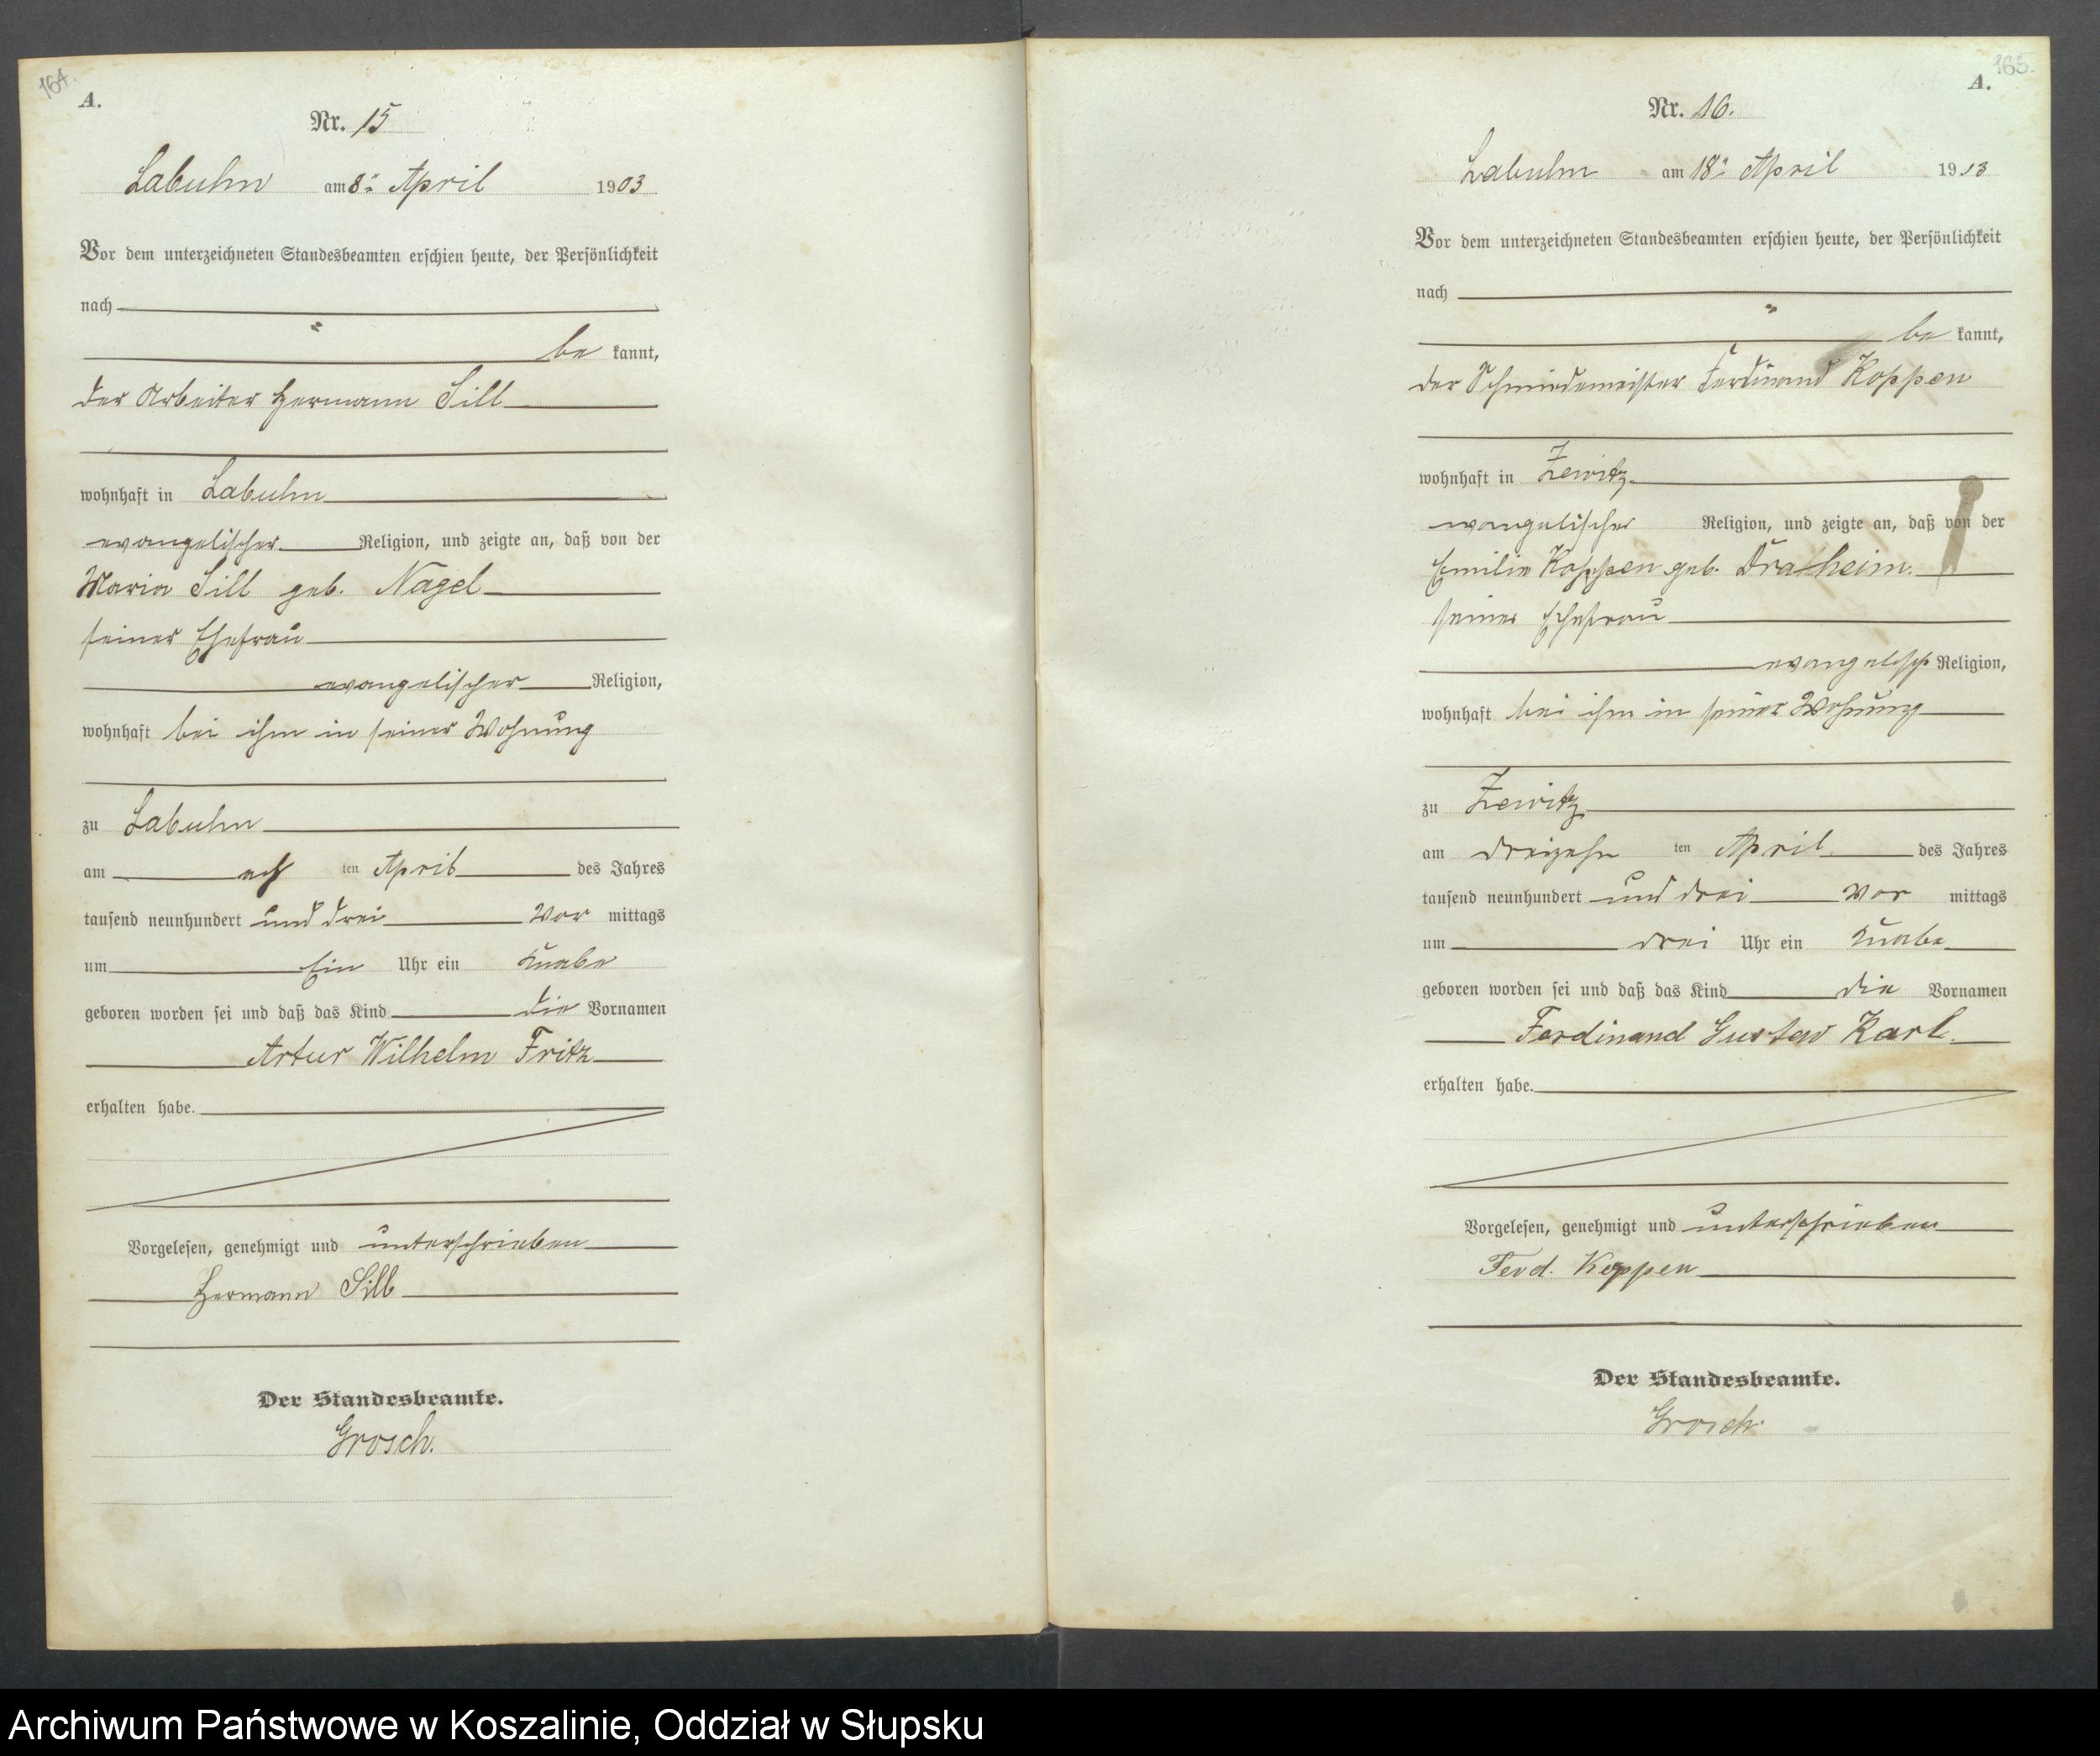 164.
A.
Nr. 15
Labuhn am 8ⁿ April 1903
Vor dem unterzeichneten Standesbeamten erschien heute, der Persönlichkeit
nach
be kannt,
der Arbeiter Hermann Sill
wohnhaft in Labuhn
evangelischer Religion, und zeigte an, daß von der
Maria Sill geb. Nagel
seiner Ehefrau
evangelischer Religion,
wohnhaft bei ihm in seiner Wohnung
zu Labuhn
am ach ten April des Jahres
tausend neunhundert und drei Vor mittags
um Ein Uhr ein Knabe
geboren worden sei und daß das Kind die Vornamen
Artur Wilhelm Fritz
erhalten habe.
Vorgelesen, genehmigt und unterschrieben
Hermann Sill
Der Standesbeamte.
Grosch.
165.
A.
Nr. 16.
Labuhn am 18ⁿ April 19
Vor dem unterzeichneten Standesbeamten erschien heute, der Persönlichkeit
nach
be kannt,
der Schmiedemeister Ferdinand Koppen
wohnhaft in Zewitz
evangelischer Religion, und zeigte an, daß von der
Emilie Koppen geb. Dratheim.
seiner Ehefrau
evangelisch Religion,
wohnhaft bei ihm in seiner Wohnung
zu Zewitz
am dreizehn ten April des Jahres
tausend neunhundert und drei Vor mittags
um drei Uhr ein Knabe
geboren worden sei und daß das Kind die Vornamen
Ferdinand Gustav Karl.
erhalten habe.
Vorgelesen, genehmigt und unterschrieben
Ferd. Koppen
Der Standesbeamte.
Grosch.
Archiwum Państwowe w Koszalinie, Oddział w Słupsku